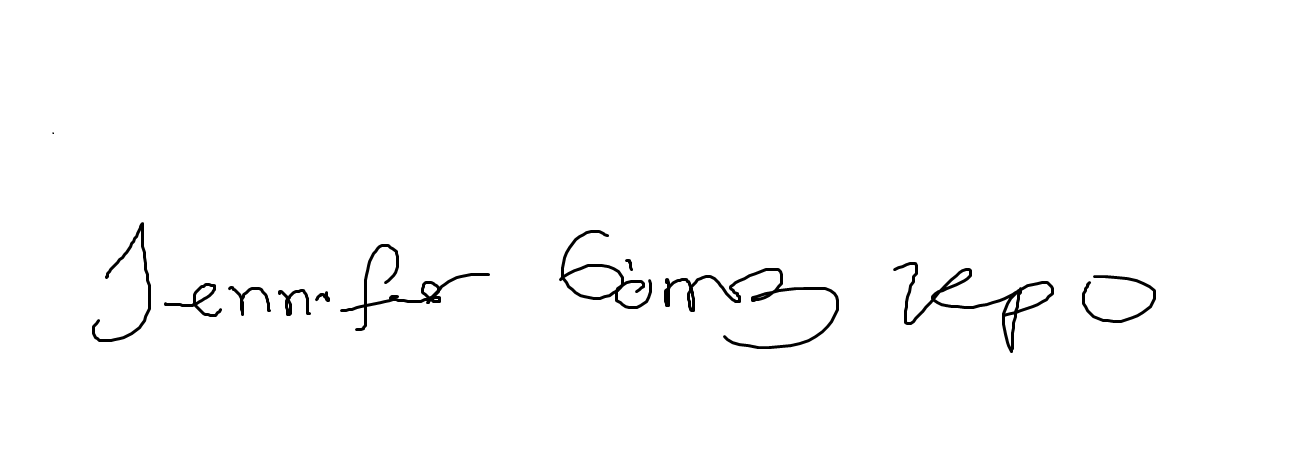 Jennifer Gómez